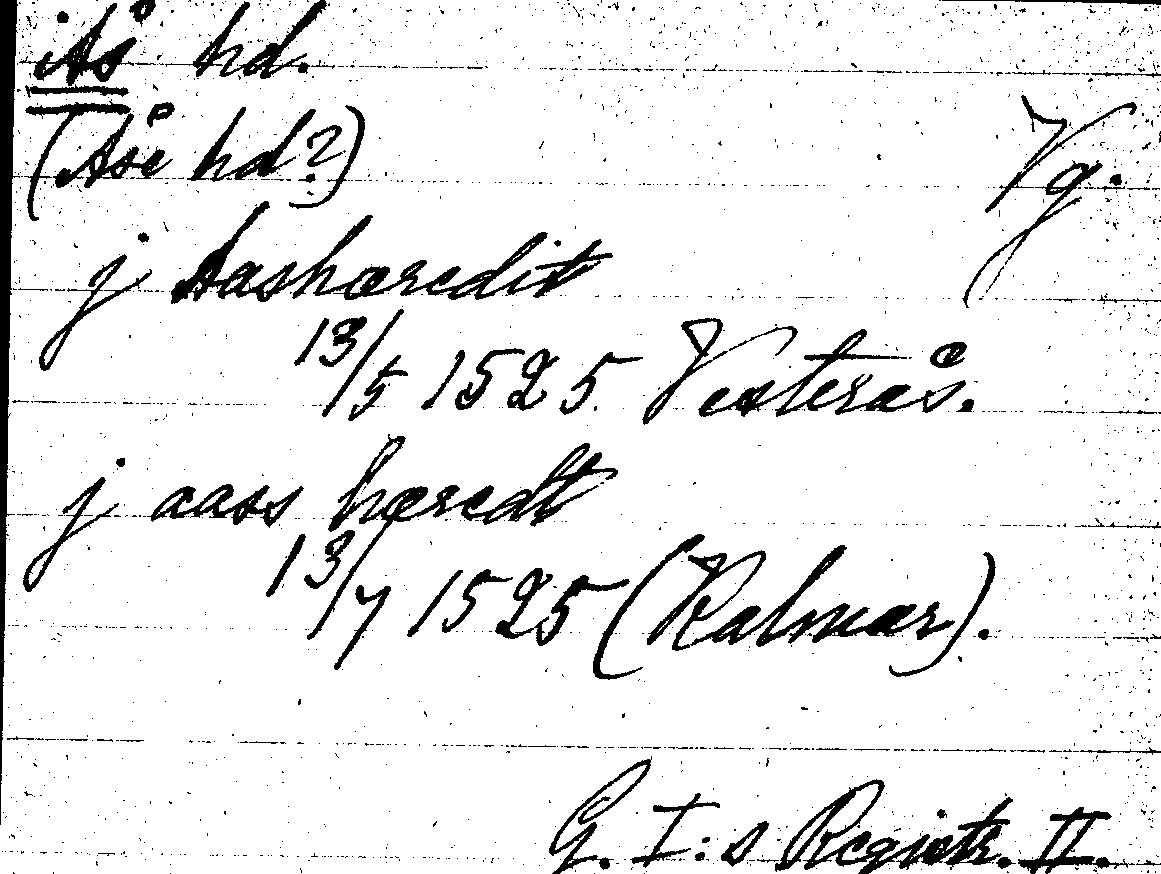 Ås hd.
(Åse hd?)
Vg.
j Aashæredit
13/5 1525 Vesterås.
j aass hæredt
13/7 1525 (Kalmar).
G. I:s Registr. II.